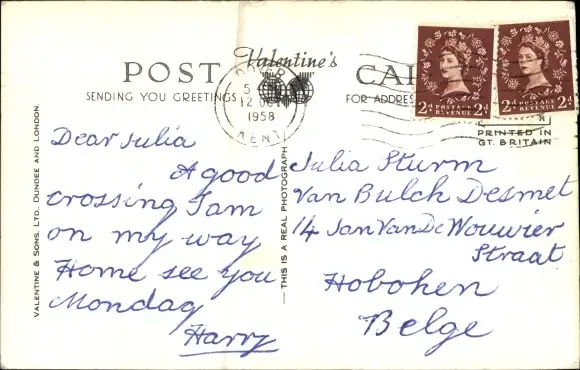 Valentine's
POST CARD
SENDING YOU GREETINGS
FOR ADDRESS
DOVER
12 OC
1958
KENT
2d POSTAGE REVENUE 2d
2d POSTAGE REVENUE 2d
PRINTED IN
GT. BRITAIN
VALENTINE & SONS, LTD., DUNDEE AND LONDON.
THIS IS A REAL PHOTOGRAPH
Dear Julia
A good
crossing I am
on my way
Home see you
Monday
Harry
Julia Sturm
Van Bulck Desmet
14 Jan Van De Wouwier
Straat
Hoboken
Belge